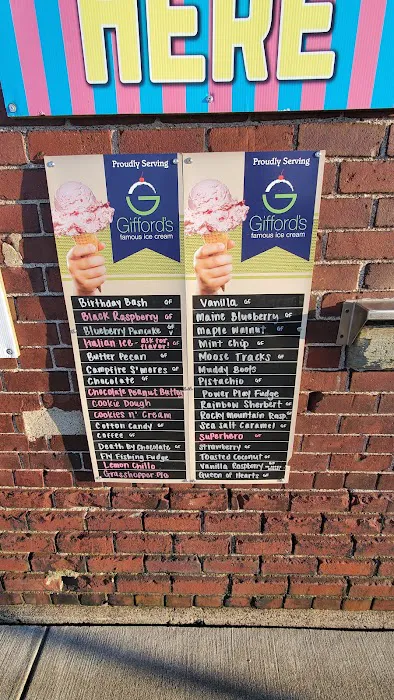 HERE
Proudly Serving
G
Gifford's
famous ice cream
Birthday Bash GF
Black Raspberry GF
Blueberry Pancake
Italian Ice - ask for flavor!
Butter Pecan GF
Campfire S'mores GF
Chocolate GF
Chocolate Peanut Butter
Cookie Dough
Cookies n' Cream
Cotton Candy GF
Coffee GF
Death By Chocolate GF
Fly Fishing Fudge
Lemon Chillo
Grasshopper Pie
Proudly Serving
G
Gifford's
famous ice cream
Vanilla GF
Maine Blueberry GF
Maple Walnut GF
Mint Chip GF
Moose Tracks GF
Muddy Boots
Pistachio GF
Power Play Fudge
Rainbow Sherbert GF
Rocky Mountain Rasp.
Sea Salt Caramel GF
Superhero GF
Strawberry GF
Toasted Coconut GF
Vanilla Raspberry
Queen of Hearts GF